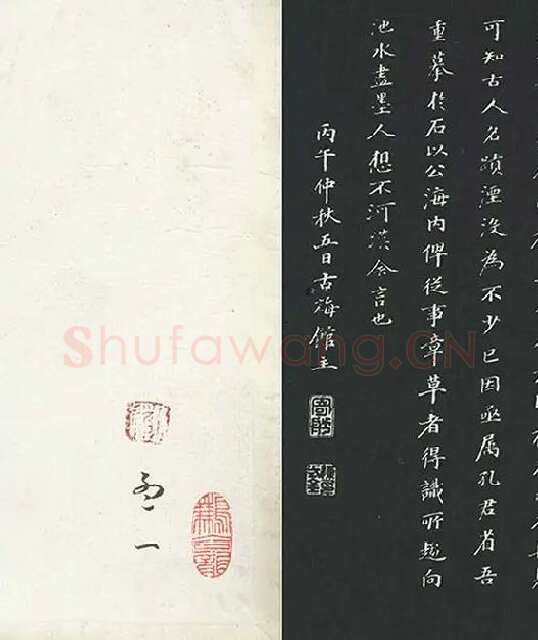 可知古人名蹟湮没為不少已因亟属孔君省吾
重摹於石以公海内俾從事章草者得識所趨向
池水盡墨人想不河漢余言也
丙午仲秋五日古館主
一
Shufawang.CN